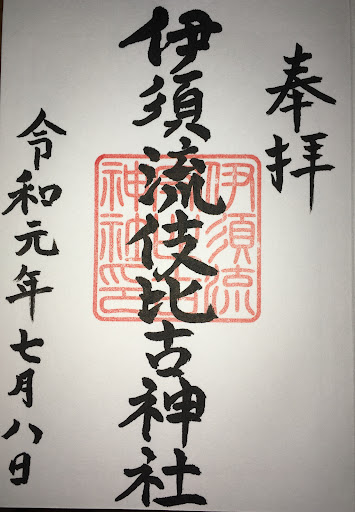 奉拝
伊須流伎比古神社
令和元年七月八日
伊須流
神社印